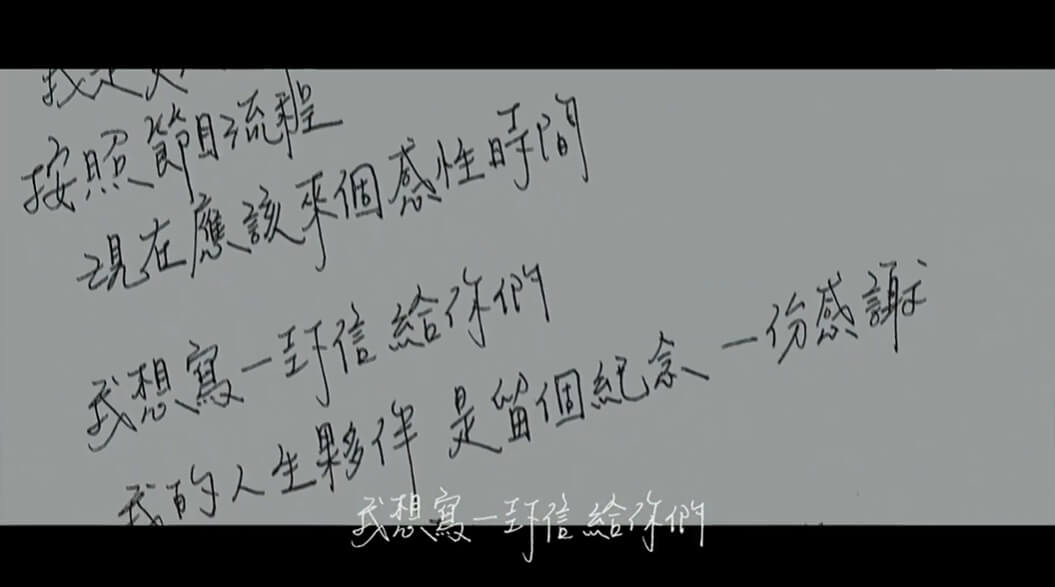 按照節目流程
現在應該來個感性時間
我想寫一封信給你們
我的人生夥伴 是留個紀念 一份感謝
我想寫一封信給你們